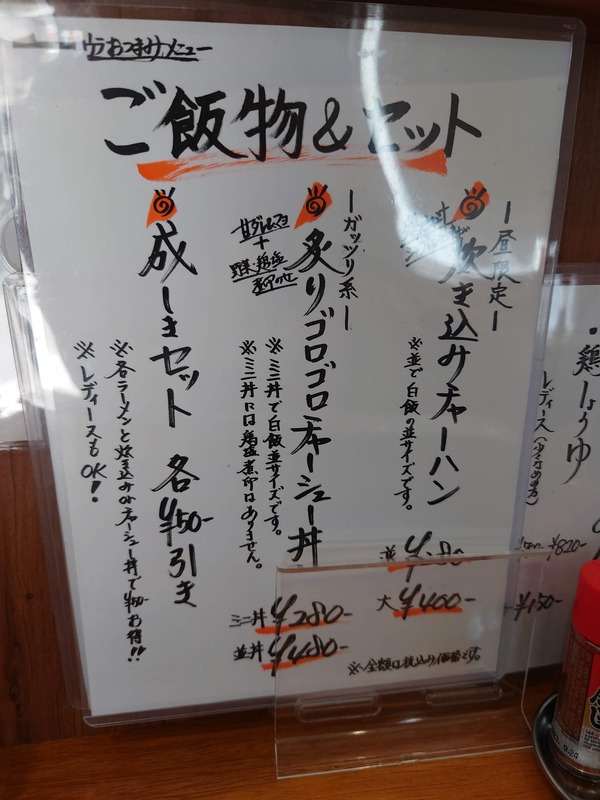 おつまみメニュー
ご飯物&セット
ー昼限定ー
炊き込みチャーハン
※並で白飯の並サイズです。
大 ¥400-
ーガッツリ系ー
炙りゴロゴロチャーシュー丼
※ミニ丼で白飯並サイズです。
※ミニ丼には鶏塩煮卵はありません。
ミニ丼 ¥280-
並丼 ¥480-
成しきセット 各¥50-引き
※各ラーメンと炊き込みorチャーシュー丼で¥50-お得!!
※レディースもOK!
※金額は税込み価格です。
・鶏しょうゆ
レディース(少なめの方)
¥820-
¥150-